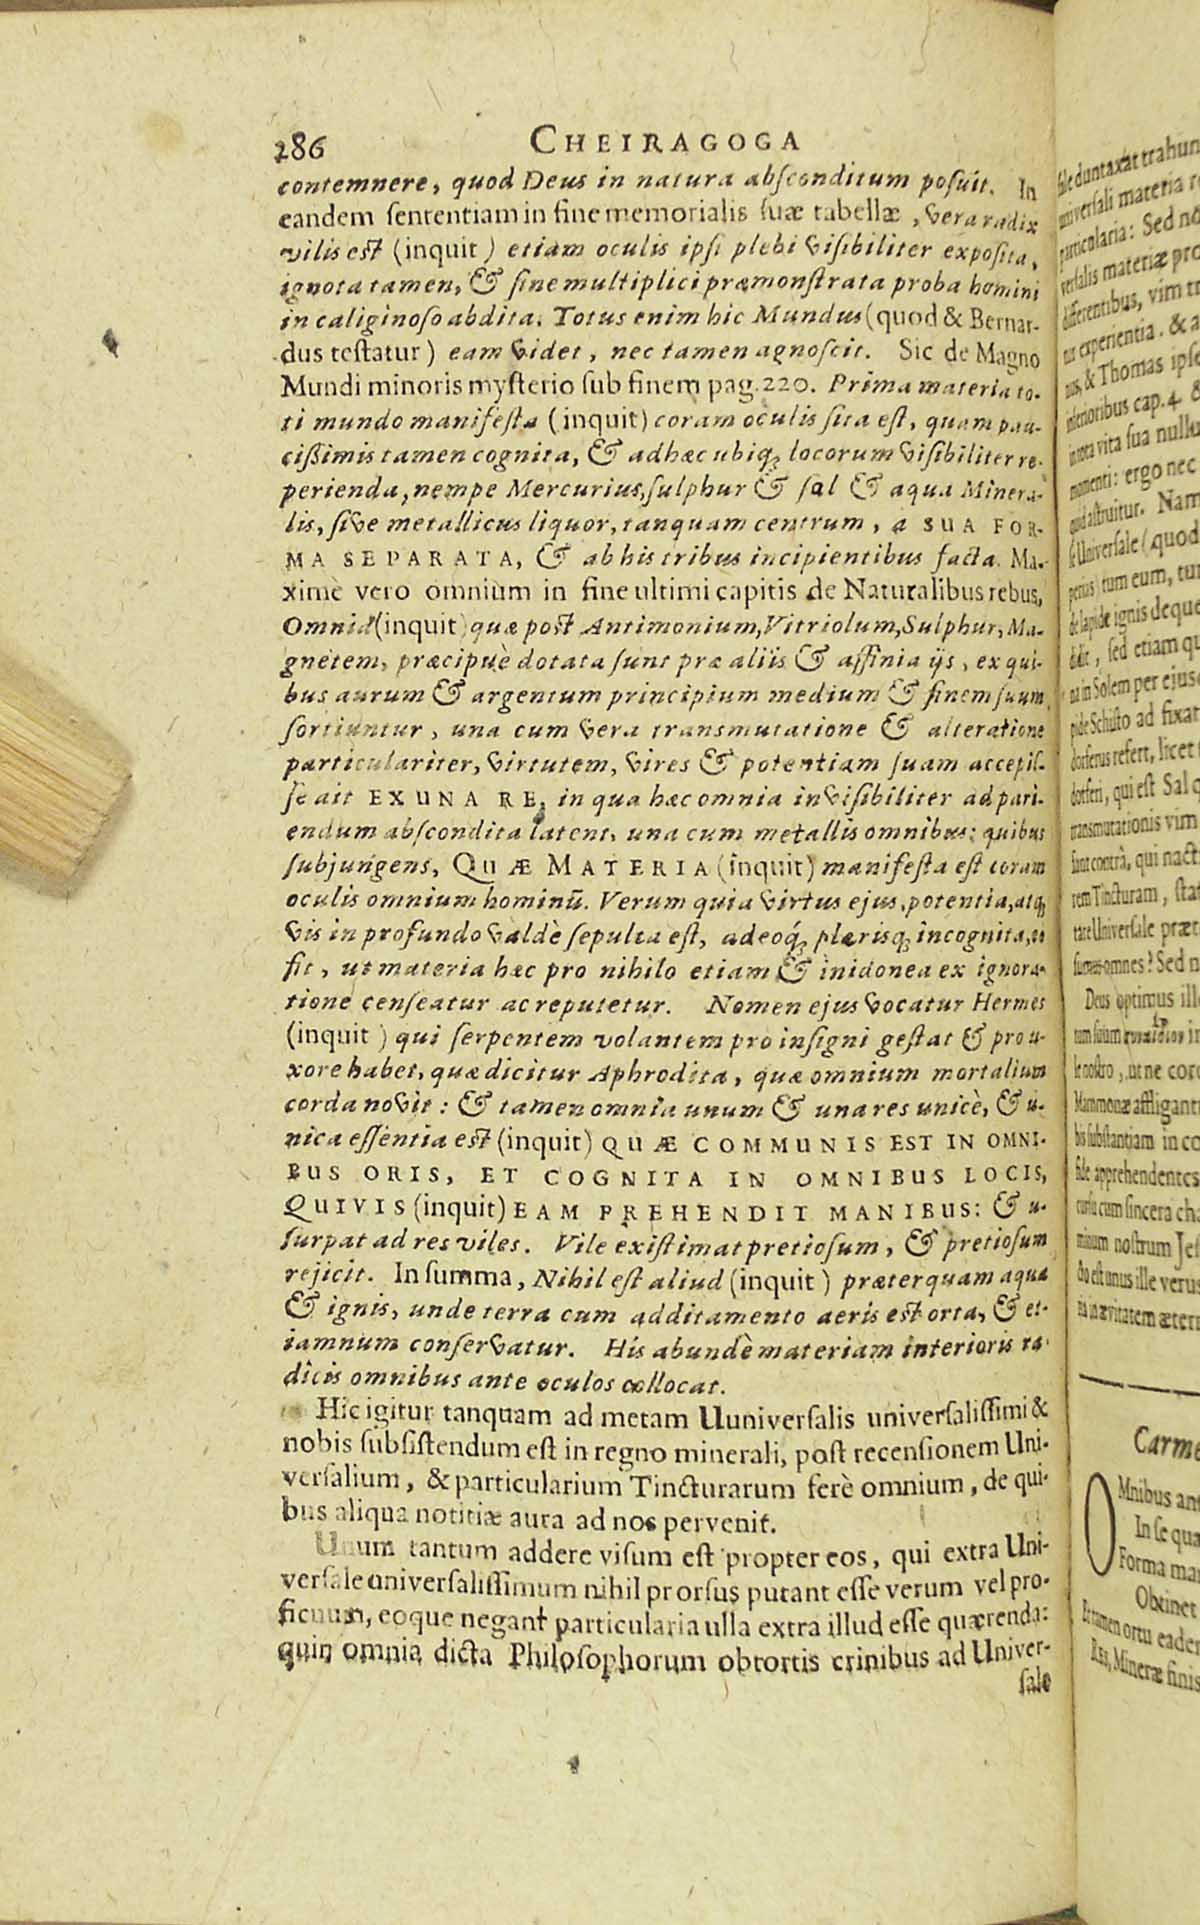 286 CHEIRAGOGA
contemnere, quod Deus in natura absconditum posuit. In
eandem sententiam in fine memorialis suæ tabellæ, vera radix
vilis est (inquit) etiam oculis ipsi plebi visibiliter exposita,
ignota tamen, & sine multiplici præmonstrata proba homini
in caliginoso abdita. Totus enim hic Mundus (quod & Bernar-
dus testatur) eam videt, nec tamen agnoscit. Sic de Magno
Mundi minoris mysterio sub finem pag. 220. Prima materia to-
ti mundo manifesta (inquit) coram oculis sita est, quam pau-
cissimis tamen cognita, & adhæc ubiq; locorum visibiliter re-
perienda, nempe Mercurius, sulphur & sal & aqua Minera-
lis, sive metallicus liquor, tanquam centrum, a SUA FOR-
MA SEPARATA, & ab his tribus incipientibus facta. Ma-
ximè vero omnium in fine ultimi capitis de Naturalibus rebus,
Omnia (inquit) quæ post Antimonium, Vitriolum, Sulphur, Ma-
gnetem, præcipuè dotata sunt præ aliis & affinia ijs, ex qui-
bus aurum & argentum principium medium & finem suum
sortiuntur, una cum vera transmutatione & alteratione
particulariter, virtutem, vires & potentiam suam accepis-
se ait EX UNA RE, in qua hæc omnia invisibiliter ad pari-
endum abscondita latent, una cum metallis omnibus: quibus
subjungens, QUÆ MATERIA (inquit) manifesta est coram
oculis omnium hominū. Verum quia virtus ejus, potentia, atq;
vis in profundo valdè sepulta est, adeoq; plærisq; incognita, eo
fit, ut materia hæc pro nihilo etiam & inidonea ex ignora-
tione censeatur ac reputetur. Nomen ejus vocatur Hermes
(inquit) qui serpentem volantem pro insigni gestat & pro u-
xore habet, quæ dicitur Aphrodita, quæ omnium mortalium
corda novit: & tamen omnia unum & una res unicè, & u-
nica essentia est (inquit) QUÆ COMMUNIS EST IN OMNI-
BUS ORIS, ET COGNITA IN OMNIBUS LOCIS,
QUIVIS (inquit) EAM PREHENDIT MANIBUS: & u-
surpat ad res viles. Vile existimat pretiosum, & pretiosum
rejicit. In summa, Nihil est aliud (inquit) præterquam aqua
& ignis, unde terra cum additamento aeris est orta, & et-
iamnum conservatur. His abundè materiam interioris ra-
dicis omnibus ante oculos collocat.
Hic igitur tanquam ad metam Uuniversalis universalissimi &
nobis subsistendum est in regno minerali, post recensionem Uni-
versalium, & particularium Tincturarum ferè omnium, de qui-
bus aliqua notitiæ aura ad nos pervenit.
Unum tantum addere visum est propter eos, qui extra Uni-
versale universalissimum nihil prorsus putant esse verum vel pro-
ficuum, eoque negant particularia ulla extra illud esse quærenda:
quin omnia dicta Philosophorum obtortis crinibus ad Univer-
sale
duntaxat trahun
materia
particularia: Sed
versalis materiæ
differentibus, vim
experientia. &
& Thomas
cap. 4.
vita sua
momenti: ergo nec
astruitur. Nam
Universale (quod
tum eum,
de lapide ignis
sed etiam
in Solem per
Schisto ad
refert, licet
qui est Sal
transmutationis vim
contrà, qui
rem Tincturam,
Universale
omnes? Sed
Deus optimus
suum
nostro, ut ne
Mammonæ
substantiam in
apprehendentes
cum sincera
nostrum
est unus ille verus

Carme
OMnibus
In se
Forma
Obtinet
ortu
Mineræ finis